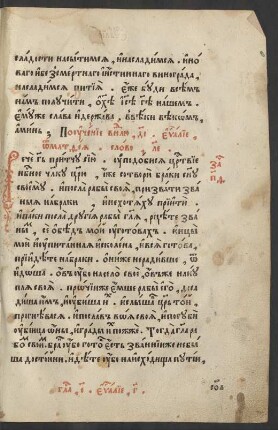 сладости насытимсѧ, и насладимсѧ. и но
ваго и безсмертнаго и истиннаго винограда,
насладимсѧ питїѧ. еже буди всѣмъ
намъ получити. ѡ хѣ і҃сѣ г҃ѣ нашемъ.
ему же слава и держава. в вѣки вѣкомъ,
аминь. Поученїе в не҃лю, д҃і. еѵ҃алїе
ѿ матѳеѧ. слово
Рече г҃ь притчу сїю. ѹподобисѧ црⷭ҇твїе
нб҃ное чл҃ку црю, иже сотвори браки сн҃у
своему. и посла рабы своѧ, призвати зва
ныѧ на браки, и не хотѧху прїити.
и паки посла другїѧ рабы гл҃ѧ, рцѣте зва
нымъ, се обѣдъ мой уготовахъ. юнцы
мой и упитаннаѧ исколена, и всѧ готова,
прїидѣте на браки. они же нерадивше, ѿ
идоша. ѡвъ убо на село свое, ѡвъ же на ку
плѧ своѧ. прочїи же емше рабы его, доса
диша имъ, и убиша ѧ. и слышавъ цр҃ь той,
прогнѣвасѧ, и пославъ воѧ своѧ, и погуби
убийца ѡны, и градъ ихъ пожже. Тогда гл҃а ра
бомъ своимъ. бракъ убо готовъ есть, званнїи же не бы
ша достойни. идѣте убо на исходища путїи,
гла і. еѵ҃алїе г҃.